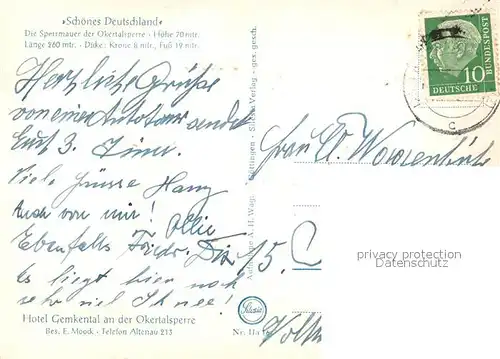 »Schönes Deutschland«
Die Sperrmauer der Okertalsperre - Höhe 70 mtr.
Länge 260 mtr. - Dicke: Krone 8 mtr., Fuß 19 mtr.
Herzliche Grüße
von einer Autotour sendet
Euch 3.
Viele Grüsse Hans
Auch von mir! Ollie
Ebenfalls Friedr.
Es liegt hier noch
sehr viel Schnee!
Hotel Gemkental an der Okertalsperre
Bes. E. Moock - Telefon Altenau 213
Göttingen - Verlag - ges. gesch.
Nr. 11a
DEUTSCHE BUNDESPOST
10
c
Frau
15.
privacy protection
Datenschutz